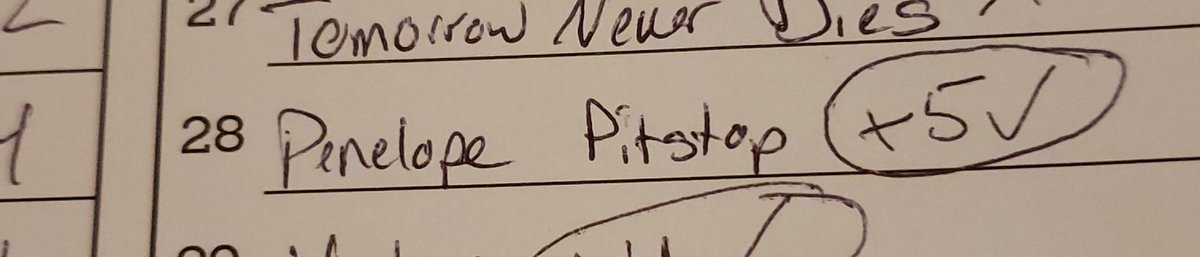 27 Tomorrow Never Dies
28 Penelope Pitstop +5✓